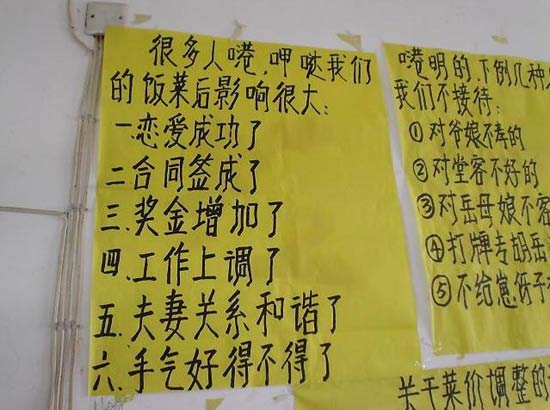 很多人嗒,呷哒我们
的饭菜后影响很大:
一.恋爱成功了
二.合同签成了
三.奖金增加了
四.工作上调了
五.夫妻关系和谐了
六.手气好得不得了
嗒明的.下例几种
我们不接待:
①对爷娘不孝的
②对堂客不好的
③对岳母娘不客
④打牌专胡岳
⑤不给崽伢子
关于菜价调整的